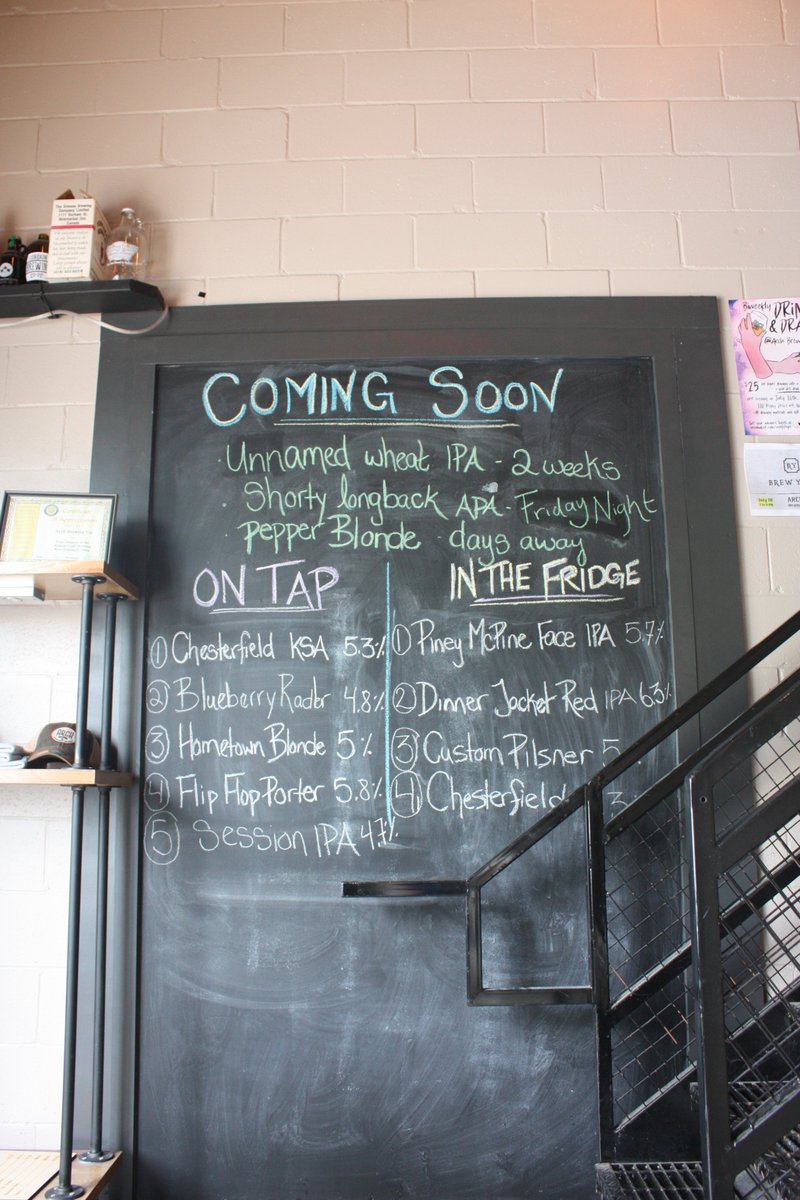 COMING SOON
· Unnamed wheat IPA - 2 weeks
Shorty longback APA - Friday Night
· Pepper Blonde - days away
ON TAP
① Chesterfield KSA 5.3%
② Blueberry Rader 4.8%
③ Hometown Blonde 5%
④ Flip Flop Porter 5.8%
⑤ Session IPA 4.7%
IN THE FRIDGE
① Piney McPine Face IPA 5.7%
② Dinner Jacket Red IPA 6.3%
③ Custom Pilsner 5
④ Chesterfield
Biweekly DRIN
& DRA
@Arch Brew
$25
BREW Y
Certificate
of Appreciation
ARCH
BREWIN